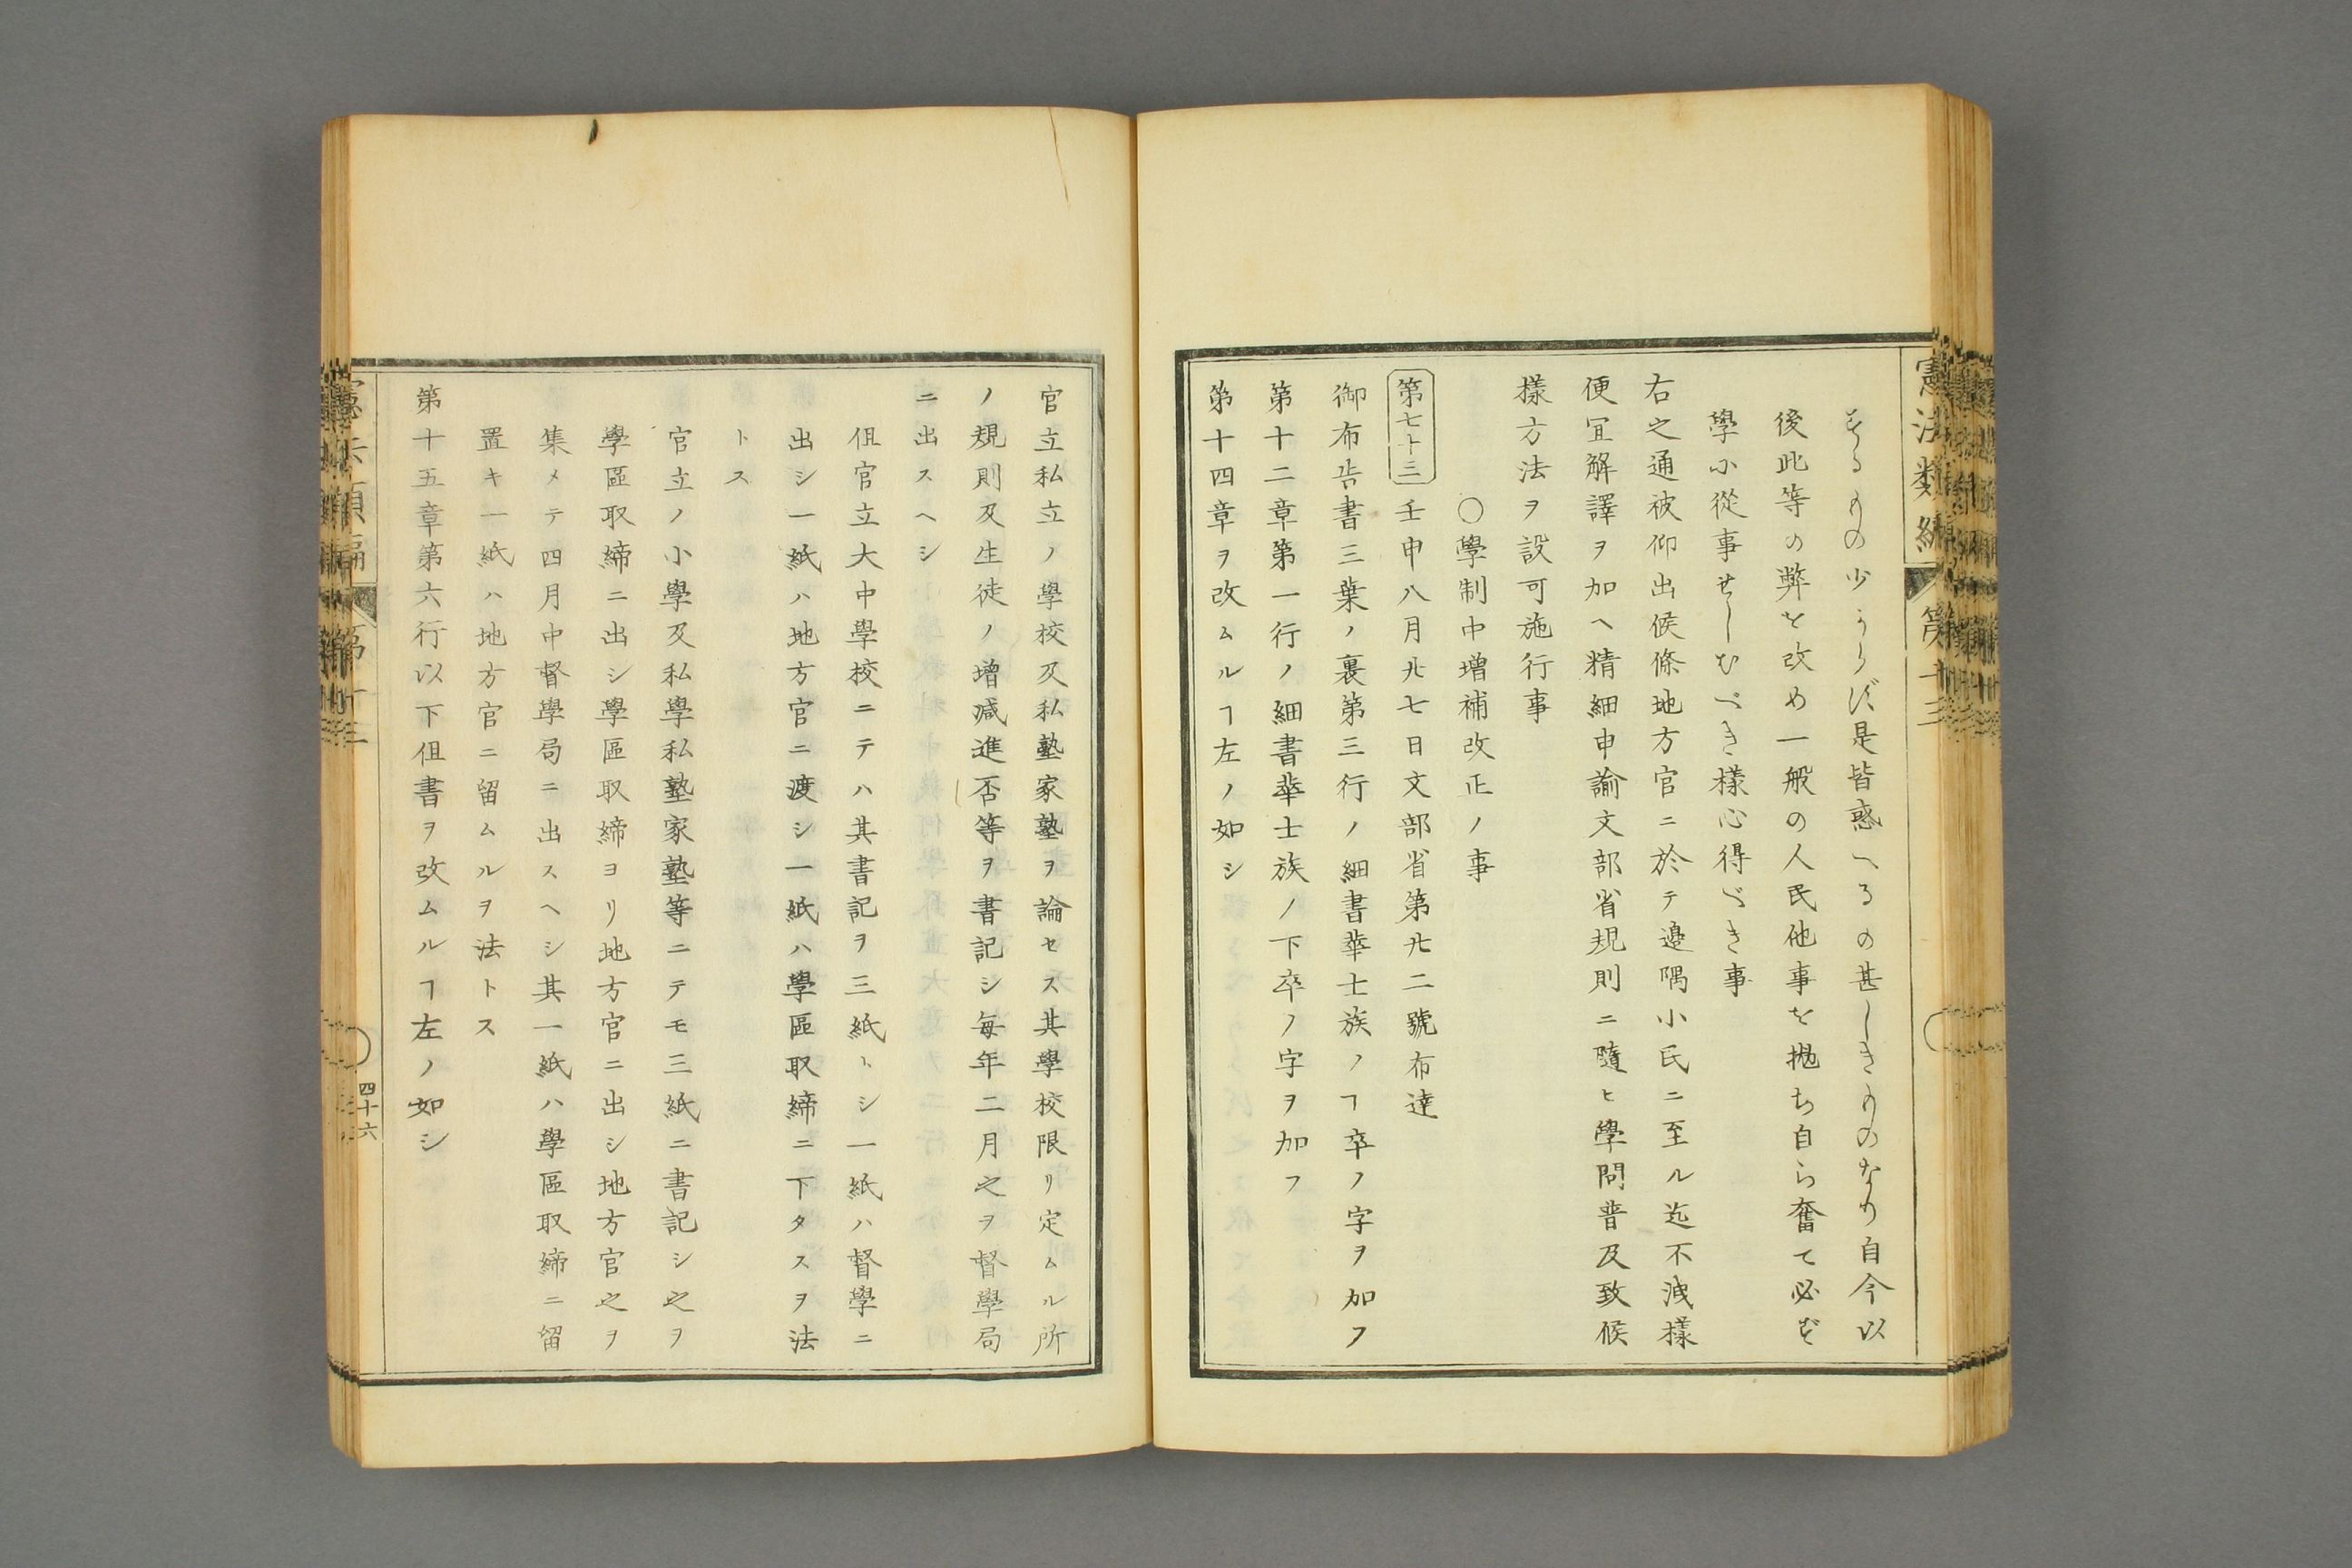 憲法類編 第十三
するもの少からず是皆惑へるの甚しきものなり自今以
後此等の弊を改め一般の人民他事を抛ち自ら奮て必ず
學小從事せしむべき樣心得べき事
右之通被仰出候條地方官ニ於テ邊隅小民ニ至ル迄不洩樣
便宜解譯ヲ加ヘ精細申諭文部省規則ニ隨ヒ學問普及致候
樣方法ヲ設可施行事
〇學制中增補改正ノ事
第七十三 壬申八月廿七日文部省第廿二號布達
御布告書三葉ノ裏第三行ノ細書華士族ノヿ卒ノ字ヲ加フ
第十二章第一行ノ細書華士族ノ下卒ノ字ヲ加フ
第十四章ヲ改ムルヿ左ノ如シ
官立私立ノ學校及私塾家塾ヲ論セス其學校限リ定ムル所
ノ規則及生徒ノ增減進否等ヲ書記シ每年二月之ヲ督學局
ニ出スヘシ
但官立大中學校ニテハ其書記ヲ三紙トシ一紙ハ督學ニ
出シ一紙ハ地方官ニ渡シ一紙ハ學區取締ニ下タスヲ法
トス
官立ノ小學及私學私塾家塾等ニテモ三紙ニ書記シ之ヲ
學區取締ニ出シ學區取締ヨリ地方官ニ出シ地方官之ヲ
集メテ四月中督學局ニ出スヘシ其一紙ハ學區取締ニ留
置キ一紙ハ地方官ニ留ムルヲ法トス
第十五章第六行以下但書ヲ改ムルヿ左ノ如シ
憲法類編 第十三 四十六